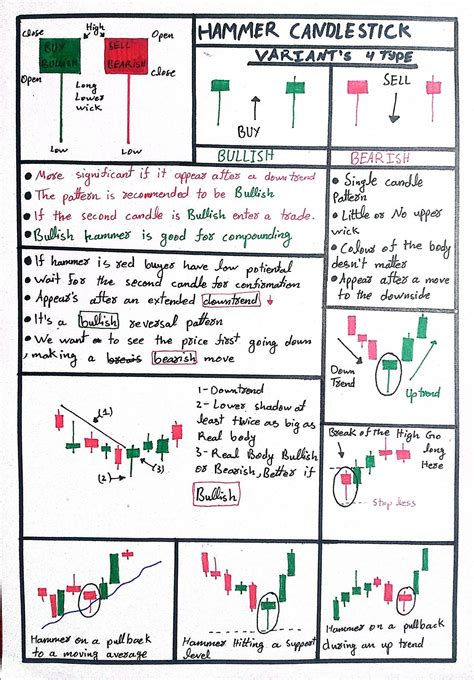 HAMMER CANDLESTICK
VARIANT'S 4 TYPE
Close
High
Open
BUY
BULLISH
SELL
BEARISH
Open
Close
Long
Lower
wick
Low
Low
BUY
SELL
BULLISH
BEARISH
• More significant if it appear after a downtrend
• The pattern is recommended to be Bullish
• If the second candle is Bullish enter a trade.
• Bullish hammer is good for compounding
• Single candle
Pattern
• Little or No upper
wick
• Colour of the body
doesn't matter
• Appear after a move
to the downside
• If hammer is red buyer have low potiental
• Wait for the second candle for confirmation
• Appear's after an extended downtrend
• It's a bullish reversal pattern
• We want to see the price first going down
,making a bearish move
Down
Trend
Uptrend
(1)
(2)
(3)
1- Downtrend
2- Lower shadow at
least twice as big as
Real body
3- Real Body Bullish
or Bearish, Better if
Bullish
Break of the High Go
long
Here
Stop loss
Hammer on a pullback
to a moving average
Hammer Hitting a support
level
Hammer on a pullback
during an up trend